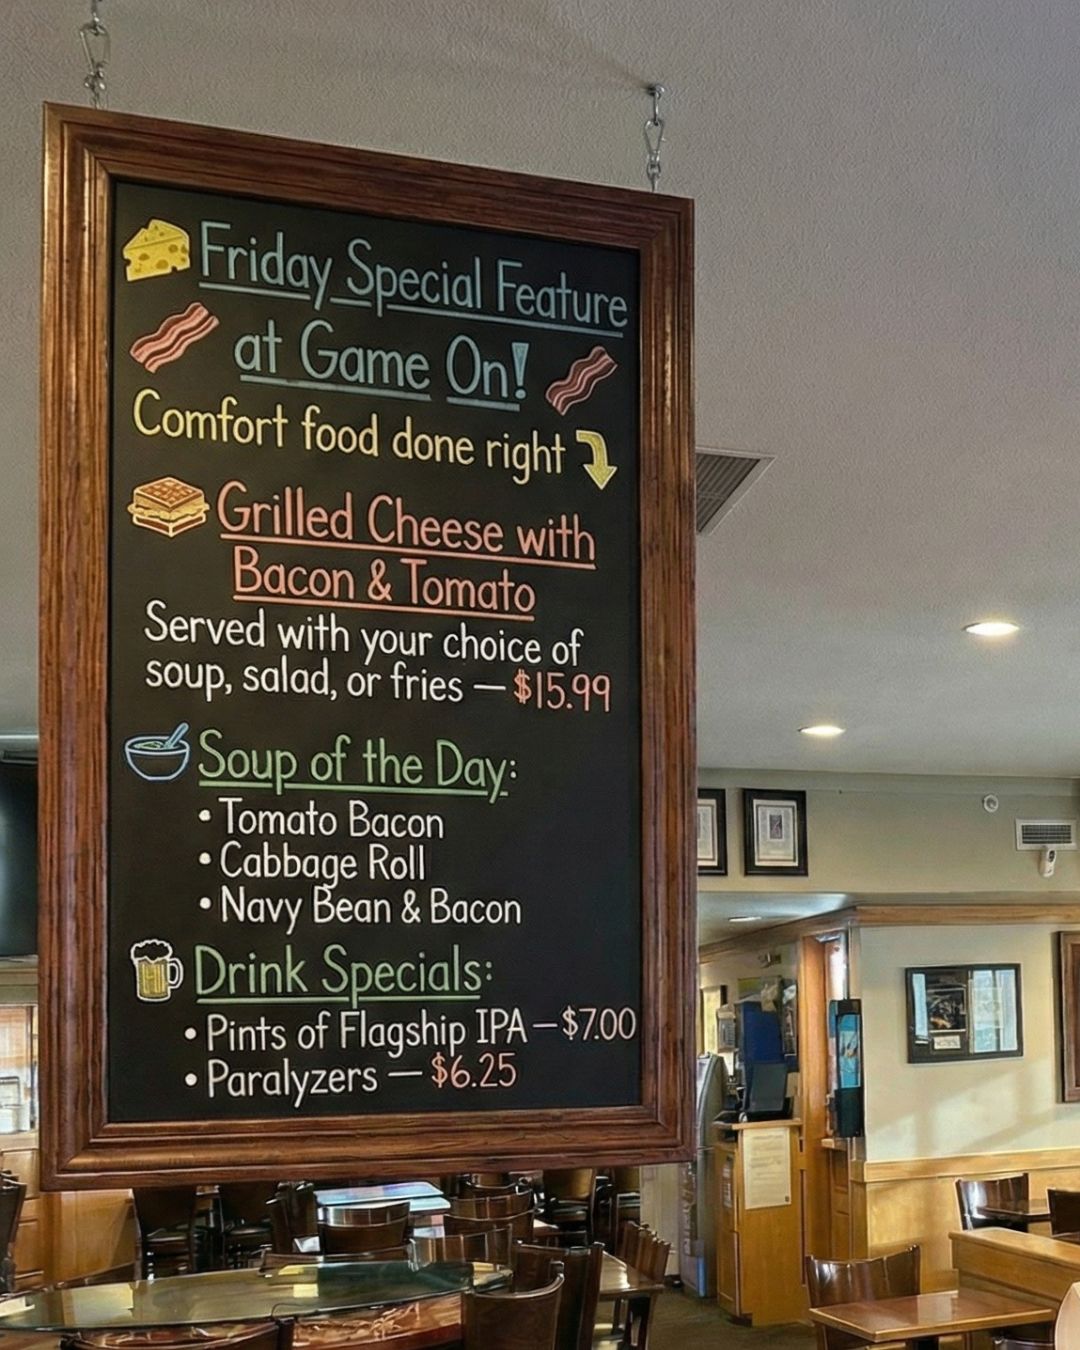 Friday Special Feature
at Game On!
Comfort food done right
Grilled Cheese with
Bacon & Tomato
Served with your choice of
soup, salad, or fries — $15.99
Soup of the Day:
• Tomato Bacon
• Cabbage Roll
• Navy Bean & Bacon
Drink Specials:
• Pints of Flagship IPA — $7.00
• Paralyzers — $6.25